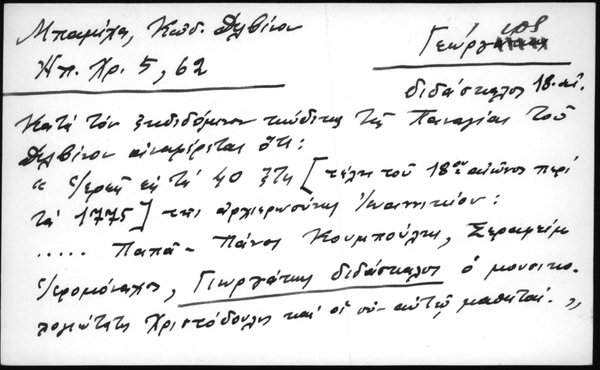 Μπαμίχα, Κώδ. Δελβίνου
Γεώργιος
Ηπ. Χρ. 5, 62
διδάσκαλος 18. αἰ.
Κατά τόν ἐκδιδόμενον κώδικα τῆς Παναγίας τοῦ
Δελβίνου ἀναφέρεται ὅτι:
τά 40 ἔτη [τέλη τοῦ 18ου αἰῶνος περί
τά 1775] ἐπί ἀρχιερωσύνης Ἰωαννικίου:
..... Παπᾶ - Πάνος Κουμπούλης, Σεραφείμ
Ἱερομόναχος, Γιωργάκης διδάσκαλος ὁ μουσικο-
λογιώτατος Χριστόδουλος καί οἱ σύν αὐτῷ μαθηταί. "